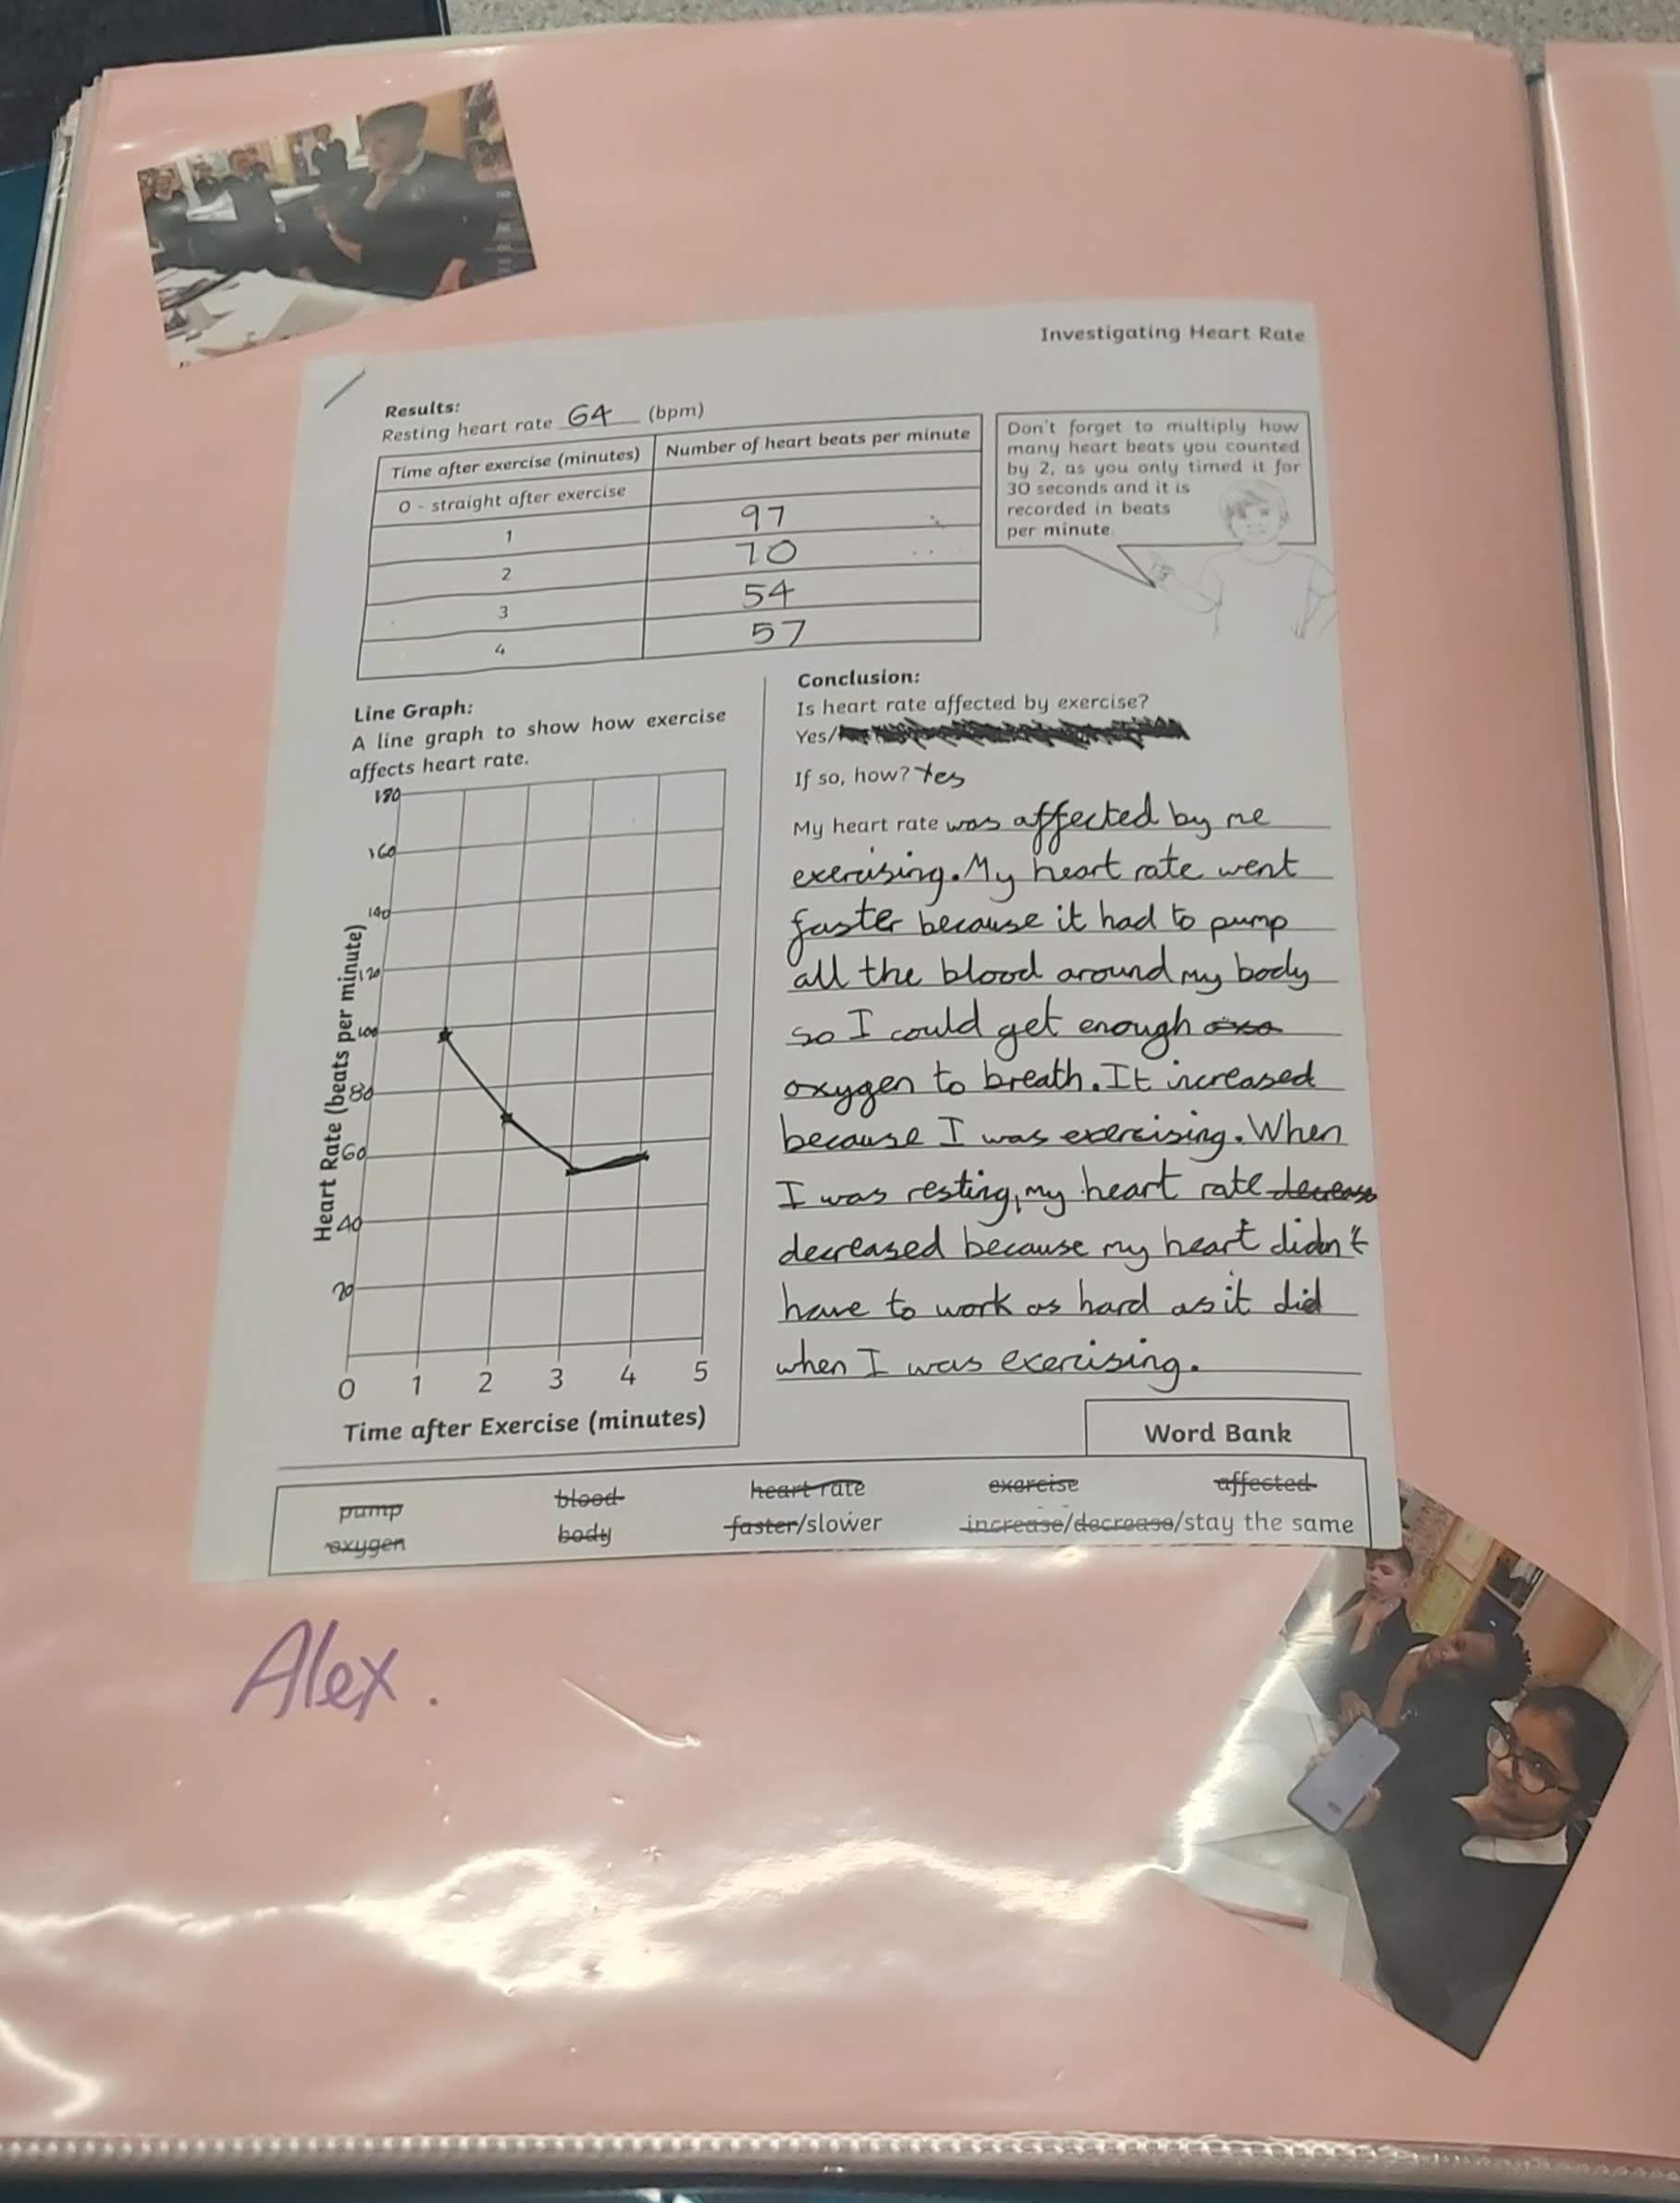 Investigating Heart Rate
Results:
Resting heart rate 64 (bpm)
Time after exercise (minutes) Number of heart beats per minute
0 - straight after exercise
1 97
2 70
3 54
4 57
Don't forget to multiply how
many heart beats you counted
by 2, as you only timed it for
30 seconds and it is
recorded in beats
per minute.
Line Graph:
A line graph to show how exercise
affects heart rate.
Heart Rate (beats per minute)
180
160
140
120
100
80
60
40
20
0 1 2 3 4 5
Time after Exercise (minutes)
Conclusion:
Is heart rate affected by exercise?
Yes/
If so, how? Yes
My heart rate was affected by me
exercising. My heart rate went
faster because it had to pump
all the blood around my body
so I could get enough
oxygen to breath. It increased
because I was exercising. When
I was resting, my heart rate decrease
decreased because my heart didn't
have to work as hard as it did
when I was exercising.
Word Bank
pump blood heart rate exercise affected
oxygen body faster/slower increase/decrease/stay the same
Alex.